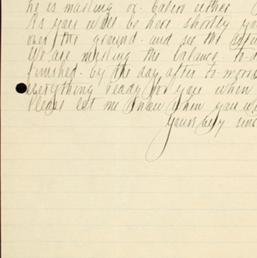 he is mailing or cables either.
As you will be here shortly you
over the ground and see the
We are making the balance to d
finished by the day after to morrow
everything ready for you when
Please let me know when you wi
Yours very sinc